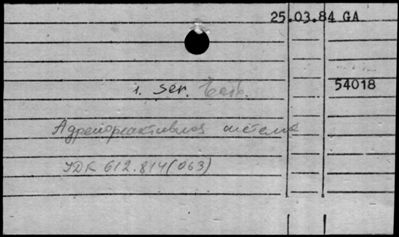 25.03.84 GA
1. ser.
54018
Адренореактивная система
УДК 612.814(063)